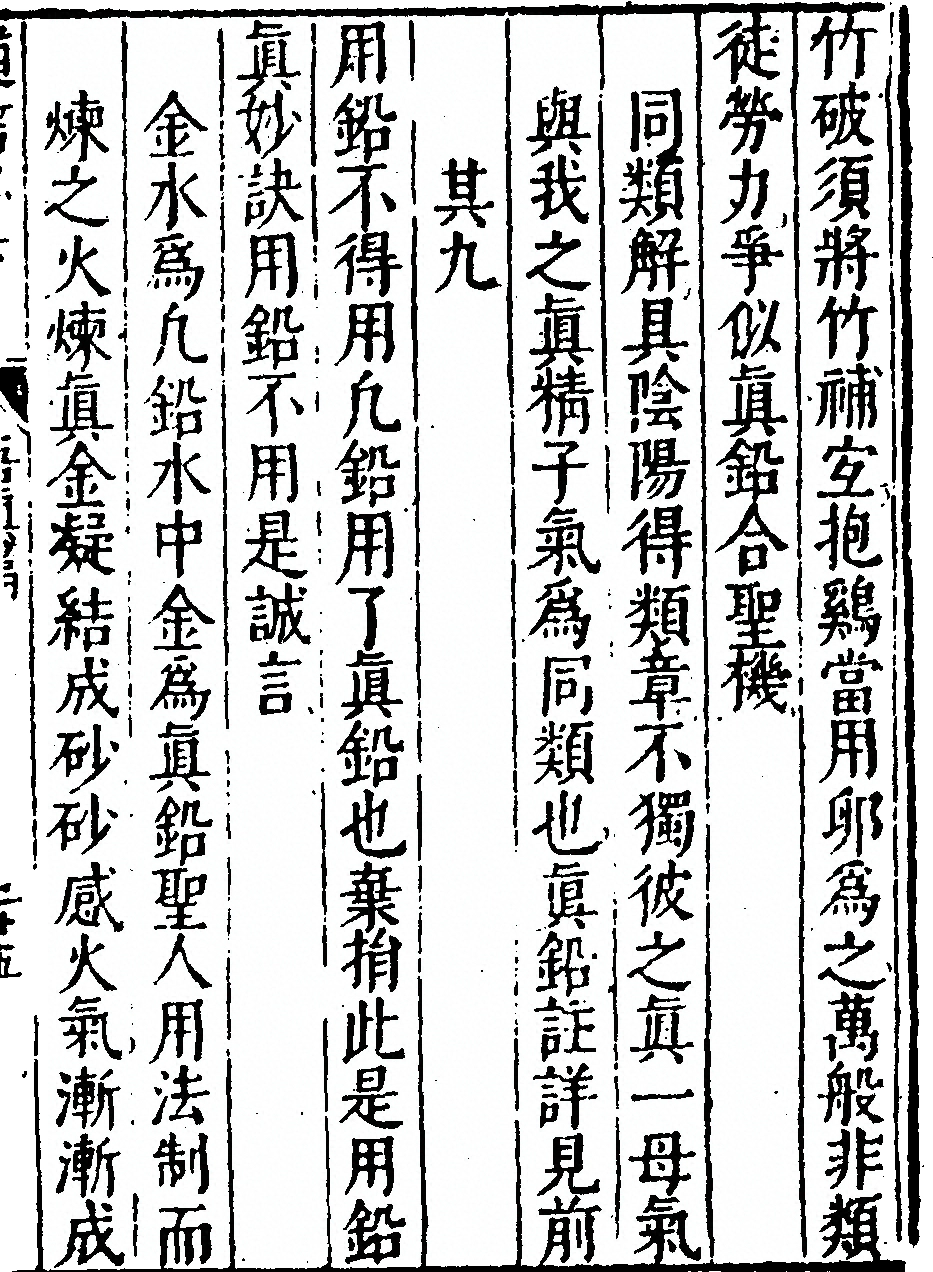 竹破須將竹補宐抱鷄當用卵爲之萬般非類
徒勞力爭似眞鉛合聖機
同類解具陰陽得類章不獨彼之眞一母氣
與我之眞精子氣爲同類也眞鉛註詳見前
其九
用鉛不得用凢鉛用了眞鉛也棄捐此是用鉛
眞妙訣用鉛不用是誠言
金水爲凢鉛水中金爲眞鉛聖人用法制而
煉之火煉眞金凝結成砂砂感火氣漸漸成